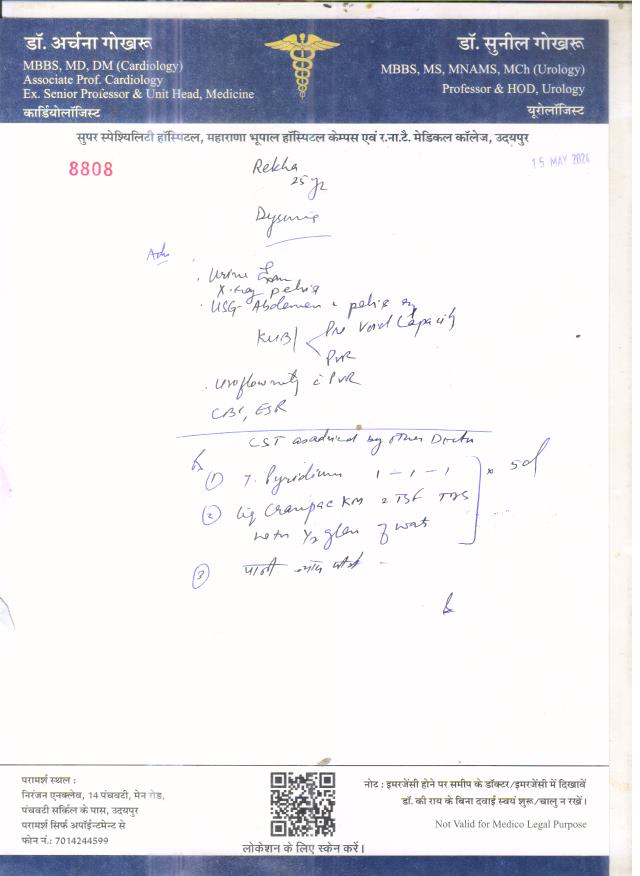 डॉ. अर्चना गोखरू
MBBS, MD, DM (Cardiology)
Associate Prof. Cardiology
Ex. Senior Professor & Unit Head, Medicine
कार्डियोलॉजिस्ट
डॉ. सुनील गोखरू
MBBS, MS, MNAMS, MCh (Urology)
Professor & HOD, Urology
यूरोलॉजिस्ट
सुपर स्पेश्यिलिटी हॉस्पिटल, महाराणा भूपाल हॉस्पिटल केम्पस एवं र.ना.टै. मेडिकल कॉलेज, उदयपुर
8808
15 MAY 2024
Rekha
25 yr
Dysuria
Adv
. Urine Exam
X-ray pelvis
. USG- Abdomen & pelvis
KUB/ Pre Void Capacity
PVR
. Uroflowmetry c̄ PVR
CBC, ESR
CST as advised by other Doctor
(1) T. Pyridium 1 - 1 - 1 x 5d
(2) Liq Cranpac KM 2 TSF TDS
with 1/2 glass of wat
(3) पानी
परामर्श स्थल :
निरंजन एनक्लेव, 14 पंचवटी, मेन रोड,
पंचवटी सर्किल के पास, उदयपुर
परामर्श सिर्फ अपॉईन्टमेन्ट से
फोन नं.: 7014244599
लोकेशन के लिए स्केन करें।
नोट : इमरजेंसी होने पर समीप के डॉक्टर/इमरजेंसी में दिखावें
डॉ. की राय के बिना दवाई स्वयं शुरू/चालु न रखें।
Not Valid for Medico Legal Purpose